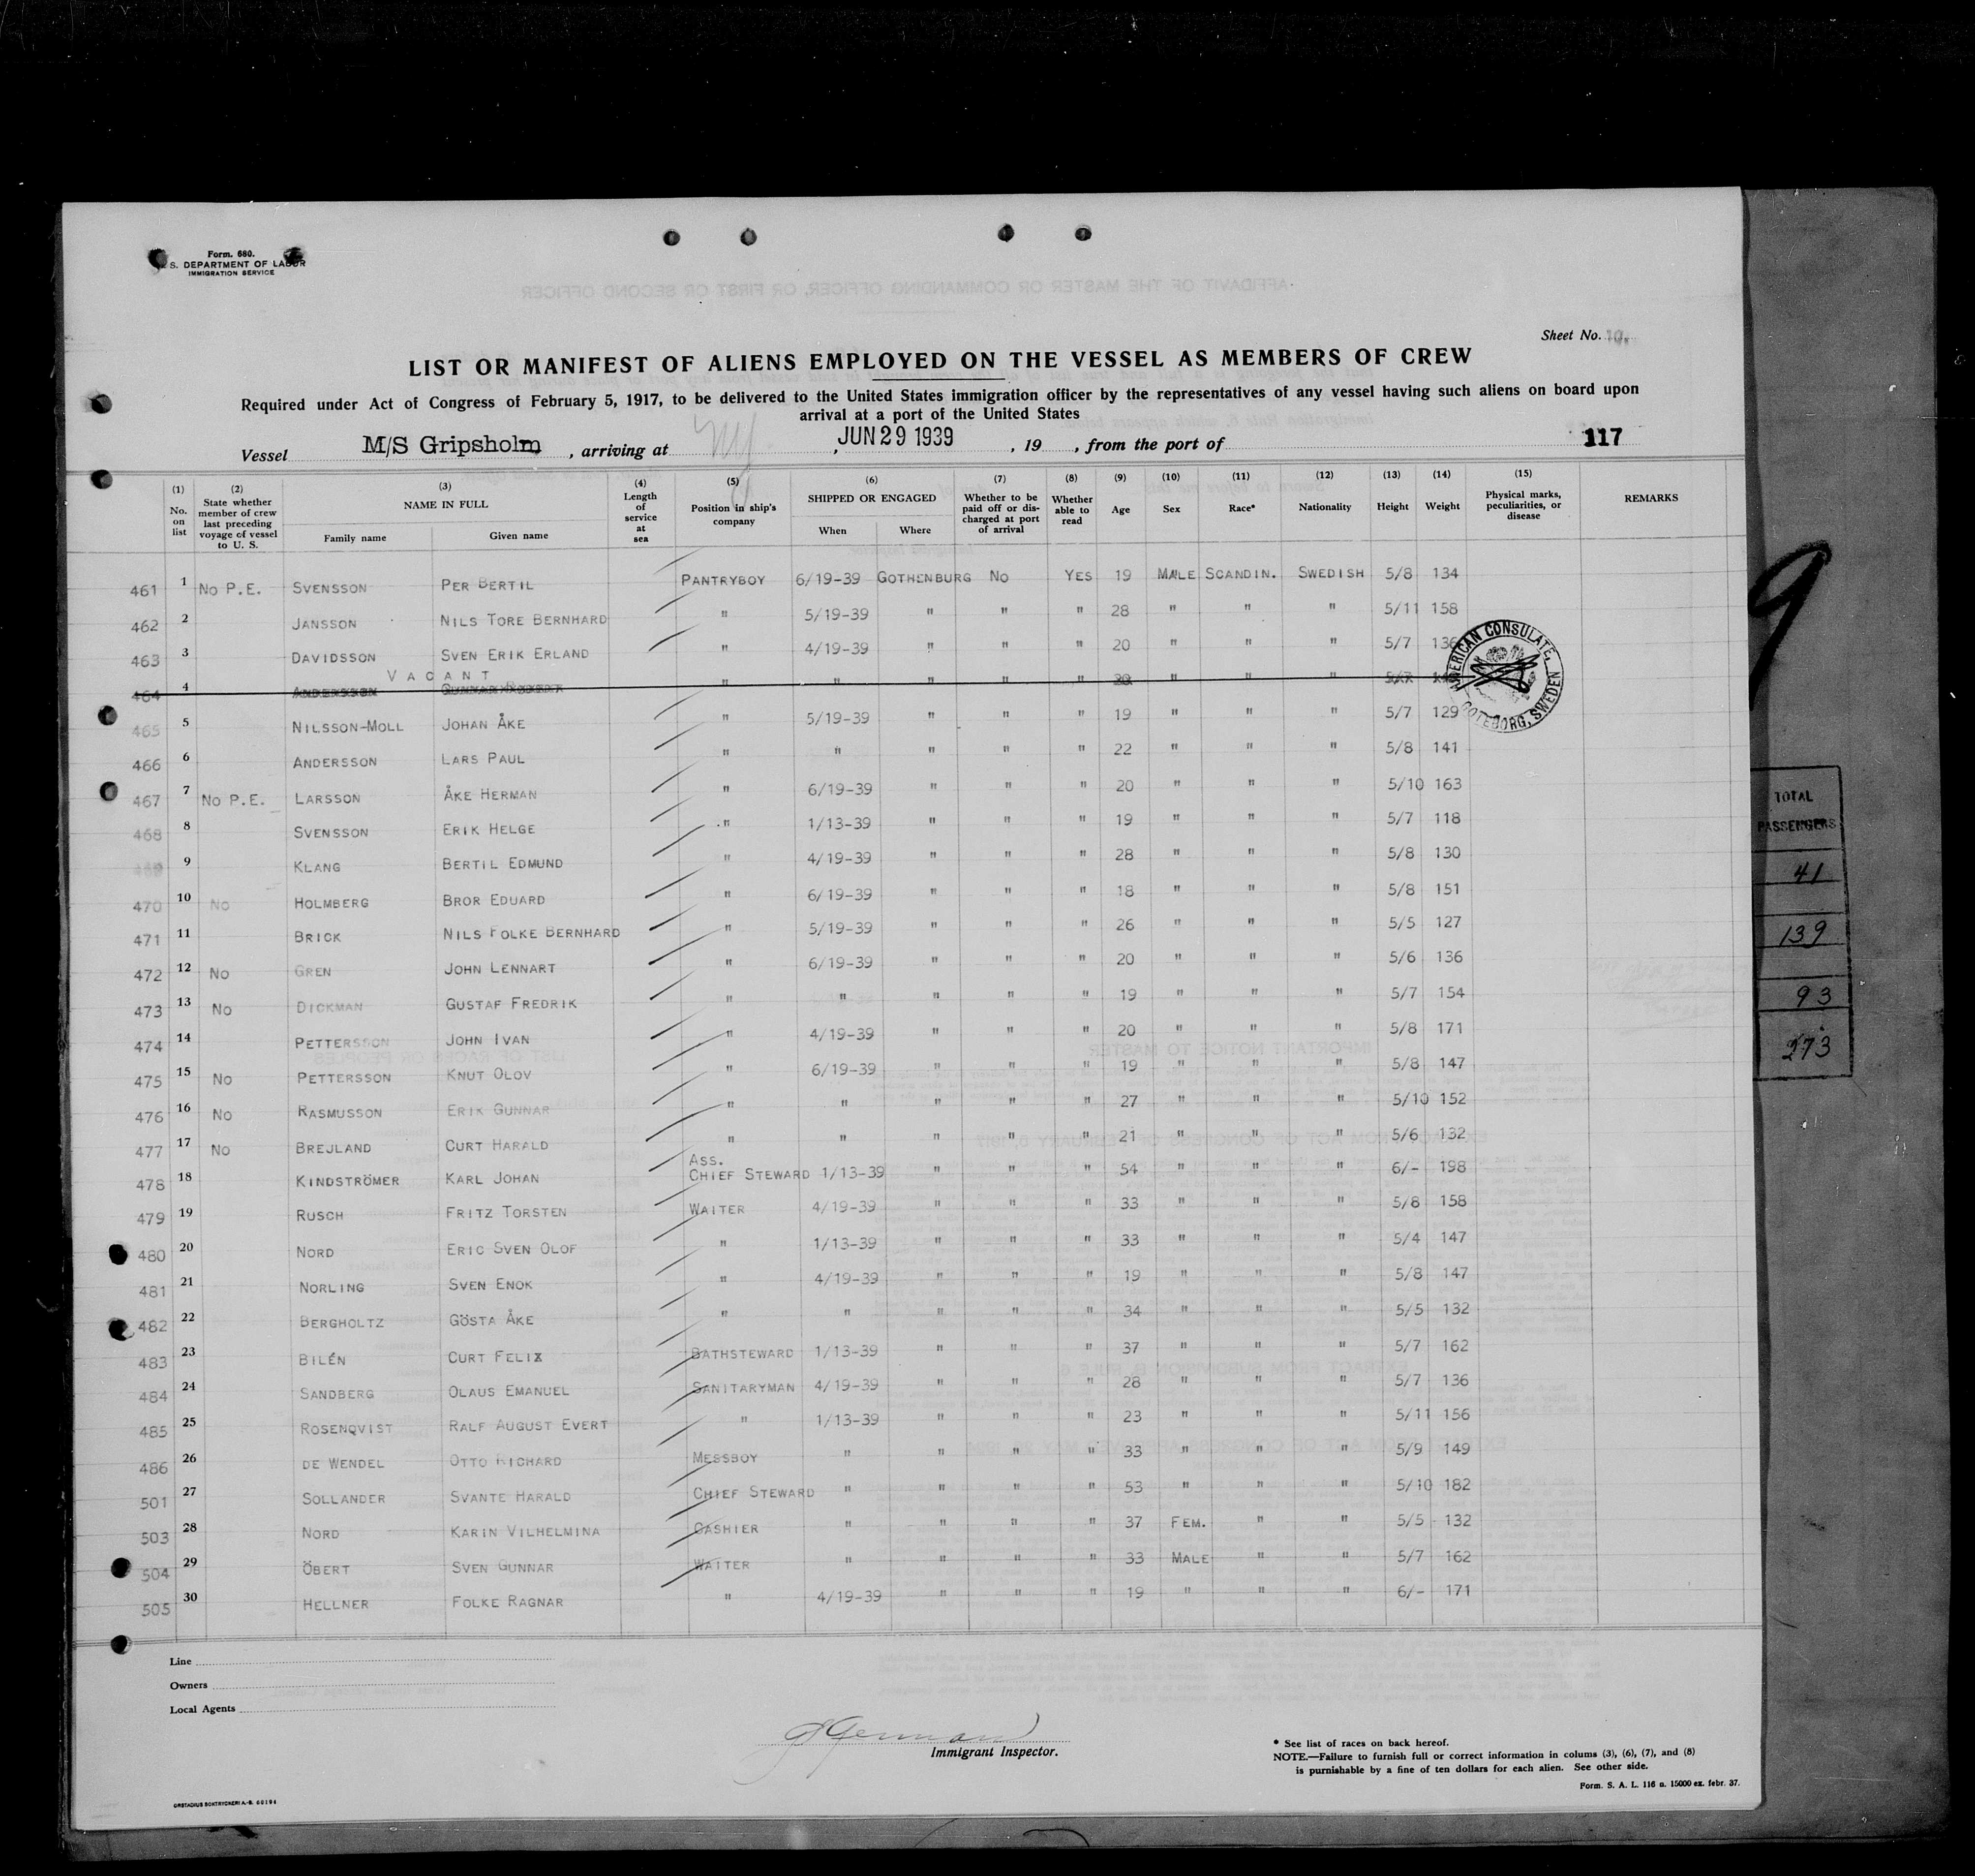 Form. 680.
S. DEPARTMENT OF LABOR
IMMIGRATION SERVICE
Sheet No.
LIST OR MANIFEST OF ALIENS EMPLOYED ON THE VESSEL AS MEMBERS OF CREW
Required under Act of Congress of February 5, 1917, to be delivered to the United States immigration officer by the representatives of any vessel having such aliens on board upon
arrival at a port of the United States
Vessel M/S Gripsholm, arriving at NY, JUN 29 1939, 19, from the port of 117
(1) No. on list (2) State whether member of crew last preceding voyage of vessel to U. S. (3) NAME IN FULL Family name Given name (4) Length of service at sea (5) Position in ship's company (6) SHIPPED OR ENGAGED When Where (7) Whether to be paid off or discharged at port of arrival (8) Whether able to read (9) Age (10) Sex (11) Race* (12) Nationality (13) Height (14) Weight (15) Physical marks, peculiarities, or disease REMARKS
461 1 No P.E. SVENSSON PER BERTIL PANTRYBOY 6/19-39 GOTHENBURG No YES 19 MALE SCANDIN. SWEDISH 5/8 134
462 2 JANSSON NILS TORE BERNHARD " 5/19-39 " " " 28 " " " 5/11 158
463 3 DAVIDSSON SVEN ERIK ERLAND " 4/19-39 " " " 20 " " " 5/7 136
VACANT
464 4 ANDERSSON " " " " " " " "
465 5 NILSSON-MOLL JOHAN ÅKE " 5/19-39 " " " 19 " " " 5/7 129
466 6 ANDERSSON LARS PAUL " " " " " 22 " " " 5/8 141
467 7 No P.E. LARSSON ÅKE HERMAN " 6/19-39 " " " 20 " " " 5/10 163
468 8 SVENSSON ERIK HELGE " 1/13-39 " " " 19 " " " 5/7 118
469 9 KLANG BERTIL EDMUND " 4/19-39 " " " 28 " " " 5/8 130
470 10 No HOLMBERG BROR EDUARD " 6/19-39 " " " 18 " " " 5/8 151
471 11 BRICK NILS FOLKE BERNHARD " 5/19-39 " " " 26 " " " 5/5 127
472 12 No GREN JOHN LENNART " 6/19-39 " " " 20 " " " 5/6 136
473 13 No DICKMAN GUSTAF FREDRIK " " " " " 19 " " " 5/7 154
474 14 PETTERSSON JOHN IVAN " 4/19-39 " " " 20 " " " 5/8 171
475 15 No PETTERSSON KNUT OLOV " 6/19-39 " " " 19 " " " 5/8 147
476 16 No RASMUSSON ERIK GUNNAR " " " " " 27 " " " 5/10 152
477 17 No BREJLAND CURT HARALD " " " " " 21 " " " 5/6 132
478 18 KINDSTRÖMER KARL JOHAN ASS. CHIEF STEWARD 1/13-39 " " " 54 " " " 6/- 198
479 19 RUSCH FRITZ TORSTEN WAITER 4/19-39 " " " 33 " " " 5/8 158
480 20 NORD ERIC SVEN OLOF " 1/13-39 " " " 33 " " " 5/4 147
481 21 NORLING SVEN ENOK " 4/19-39 " " " 19 " " " 5/8 147
482 22 BERGHOLTZ GÖSTA ÅKE " " " " " 34 " " " 5/5 132
483 23 BILÉN CURT FELIX BATHSTEWARD 1/13-39 " " " 37 " " " 5/7 162
484 24 SANDBERG OLAUS EMANUEL SANITARYMAN 4/19-39 " " " 28 " " " 5/7 136
485 25 ROSENQVIST RALF AUGUST EVERT " 1/13-39 " " " 23 " " " 5/11 156
486 26 DE WENDEL OTTO RICHARD MESSBOY " " " " 33 " " " 5/9 149
501 27 SOLLANDER SVANTE HARALD CHIEF STEWARD " " " " 53 " " " 5/10 182
503 28 NORD KARIN VILHELMINA CASHIER " " " " 37 FEM. " " 5/5 132
504 29 ÖBERT SVEN GUNNAR WAITER " " " " 33 MALE " " 5/7 162
505 30 HELLNER FOLKE RAGNAR " 4/19-39 " " " 19 " " " 6/- 171
AMERICAN CONSULATE, GOTEBORG, SWEDEN
TOTAL
PASSENGERS
41
139
93
273
9
Line
Owners
Local Agents
Immigrant Inspector.
* See list of races on back hereof.
NOTE.—Failure to furnish full or correct information in colums (3), (6), (7), and (8)
is punishable by a fine of ten dollars for each alien. See other side.
Form. S. A. L. 116 n. 15000 ex. febr. 37.
ORSTADIUS BOKTRYCKERI A.-B. 60194